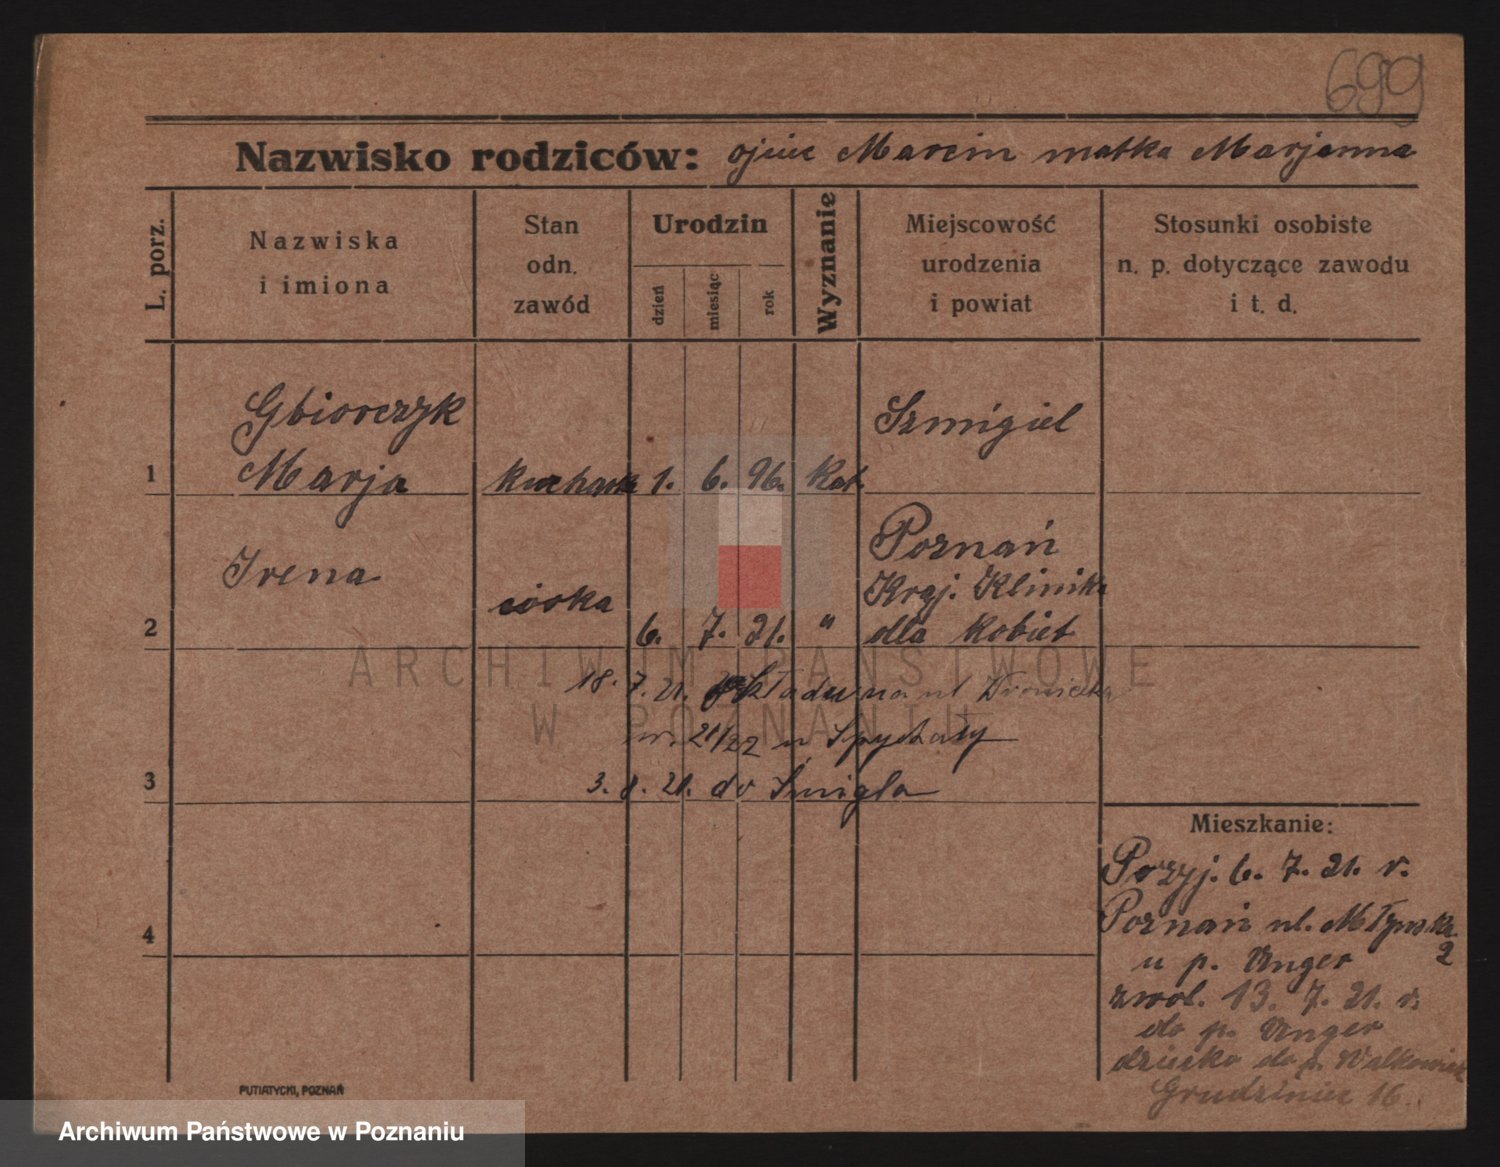 699
Nazwisko rodziców: ojciec Marcin matka Marjanna
L. porz.
Nazwiska
i imiona
Stan
odn.
zawód
Urodzin
dzień
miesiąc
rok
Wyznanie
Miejscowość
urodzenia
i powiat
Stosunki osobiste
n. p. dotyczące zawodu
i t. d.
Gbiorczyk
Szmigiel
1 Marja kucharka 1. 6. 96. Kat.
Poznań
Irena Kraj. Klinika
córka
2 6. 7. 21. " dla Kobiet
18. 7. 21. na ul
nr. 21/22 u Spychały
3 3. 8. 21. do Śmigla
Mieszkanie:
Przyj. 6. 7. 21. r.
4 Poznań ul. Młyńska
2
u p. Unger
zwol. 13. 7. 21. r.
do p. Unger
dziecko do p. Walkowiak
Grudzieniec 16.
PUTIATYCKI, POZNAŃ
ARCHIWUM PAŃSTWOWE
W POZNANIU
Archiwum Państwowe w Poznaniu